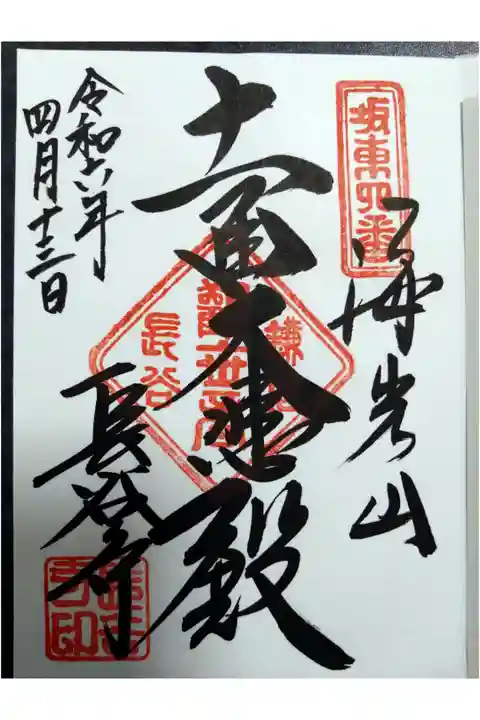 坂東四番
海光山
十一面大悲殿
鎌倉
長谷
長谷寺
長谷寺印
令和六年
四月十三日